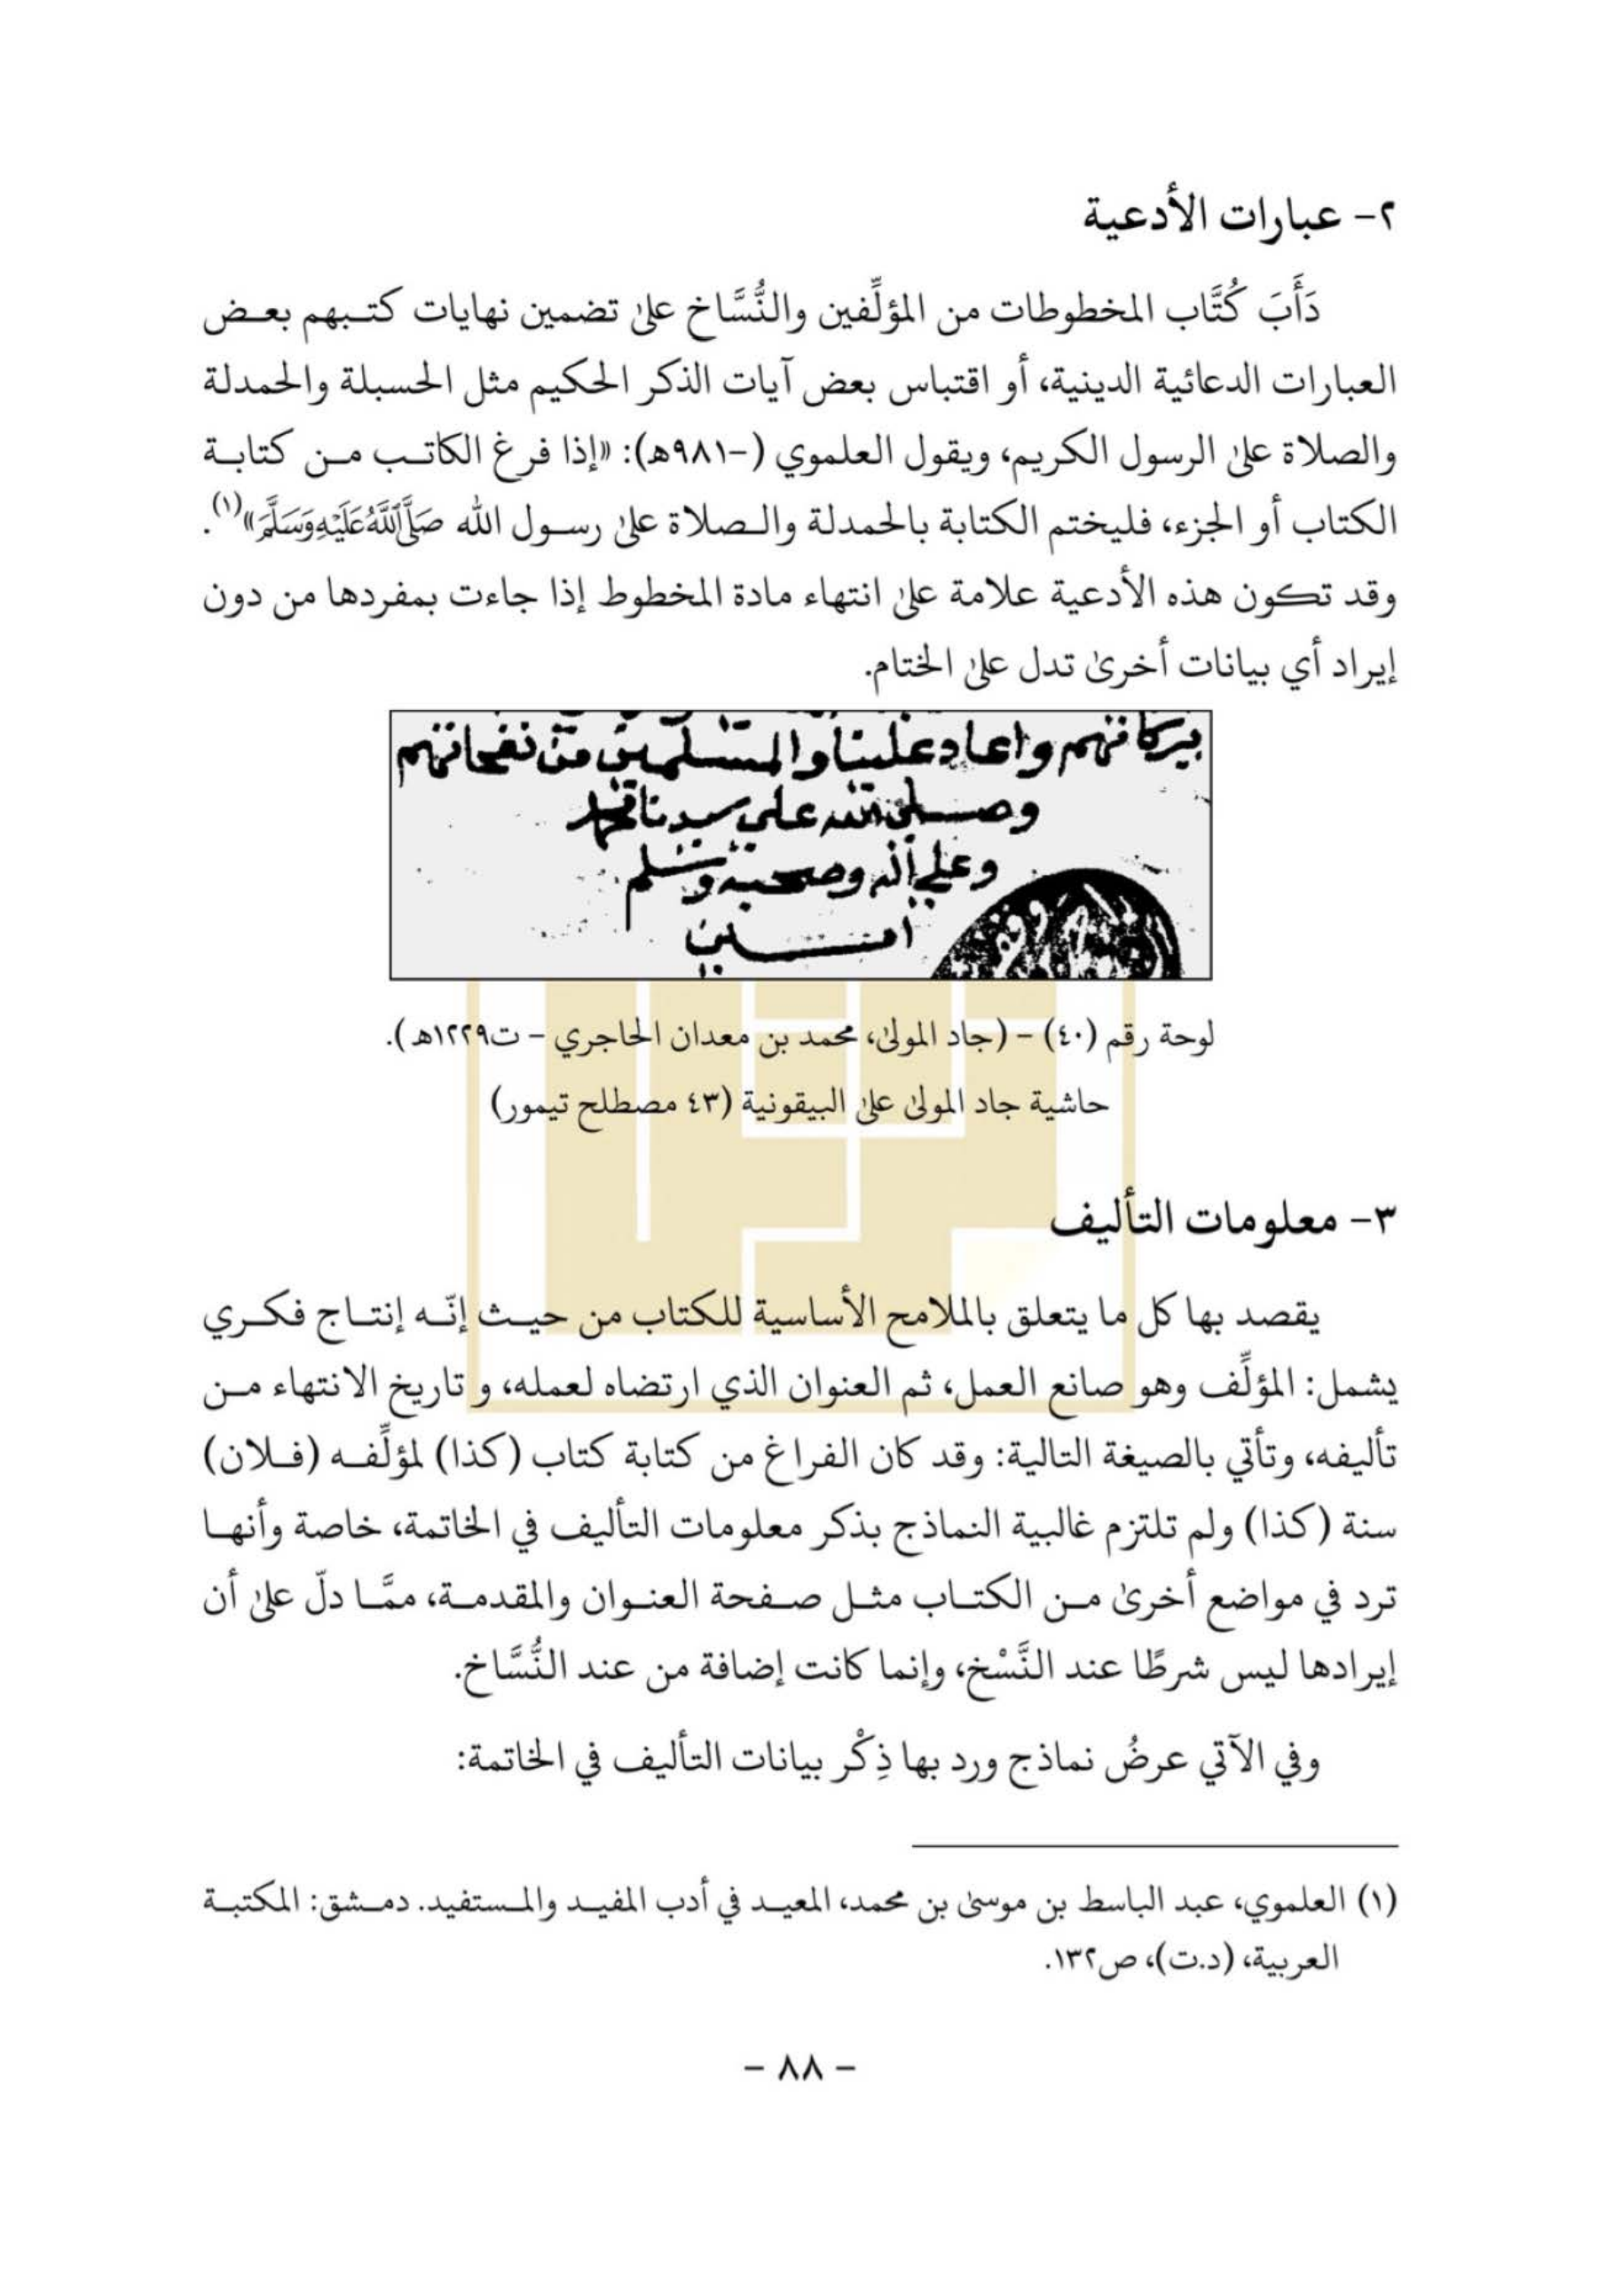 ٢- عبارات الأدعية
دَأَبَ كُتَّاب المخطوطات من المؤلِّفين والنُّسَّاخ على تضمين نهايات كتبهم بعض
العبارات الدعائية الدينية، أو اقتباس بعض آيات الذكر الحكيم مثل الحسبلة والحمدلة
والصلاة على الرسول الكريم، ويقول العلموي (-٩٨١هـ): «إذا فرغ الكاتب من كتابة
الكتاب أو الجزء، فليختم الكتابة بالحمدلة والصلاة على رسول الله صَلَّى اللَّهُ عَلَيْهِ وَسَلَّمَ»(١).
وقد تكون هذه الأدعية علامة على انتهاء مادة المخطوط إذا جاءت بمفردها من دون
إيراد أي بيانات أخرى تدل على الختام.
ببركاتهم واعاد علينا والمسلمين من نفحاتهم
وصلى الله على سيدنا محمد
وعلى اله وصحبه وسلم
امين
لوحة رقم (٤٠) - (جاد المولى، محمد بن معدان الحاجري - ت١٢٢٩هـ).
حاشية جاد المولى على البيقونية (٤٣ مصطلح تيمور)
٣- معلومات التأليف
يقصد بها كل ما يتعلق بالملامح الأساسية للكتاب من حيث إنّه إنتاج فكري
يشمل: المؤلِّف وهو صانع العمل، ثم العنوان الذي ارتضاه لعمله، و تاريخ الانتهاء من
تأليفه، وتأتي بالصيغة التالية: وقد كان الفراغ من كتابة كتاب (كذا) لمؤلِّفه (فلان)
سنة (كذا) ولم تلتزم غالبية النماذج بذكر معلومات التأليف في الخاتمة، خاصة وأنها
ترد في مواضع أخرى من الكتاب مثل صفحة العنوان والمقدمة، ممَّا دلّ على أن
إيرادها ليس شرطًا عند النَّسْخ، وإنما كانت إضافة من عند النُّسَّاخ.
وفي الآتي عرضُ نماذج ورد بها ذِكْر بيانات التأليف في الخاتمة:
(١) العلموي، عبد الباسط بن موسى بن محمد، المعيد في أدب المفيد والمستفيد. دمشق: المكتبة
العربية، (د.ت)، ص١٣٢.
- ٨٨ -